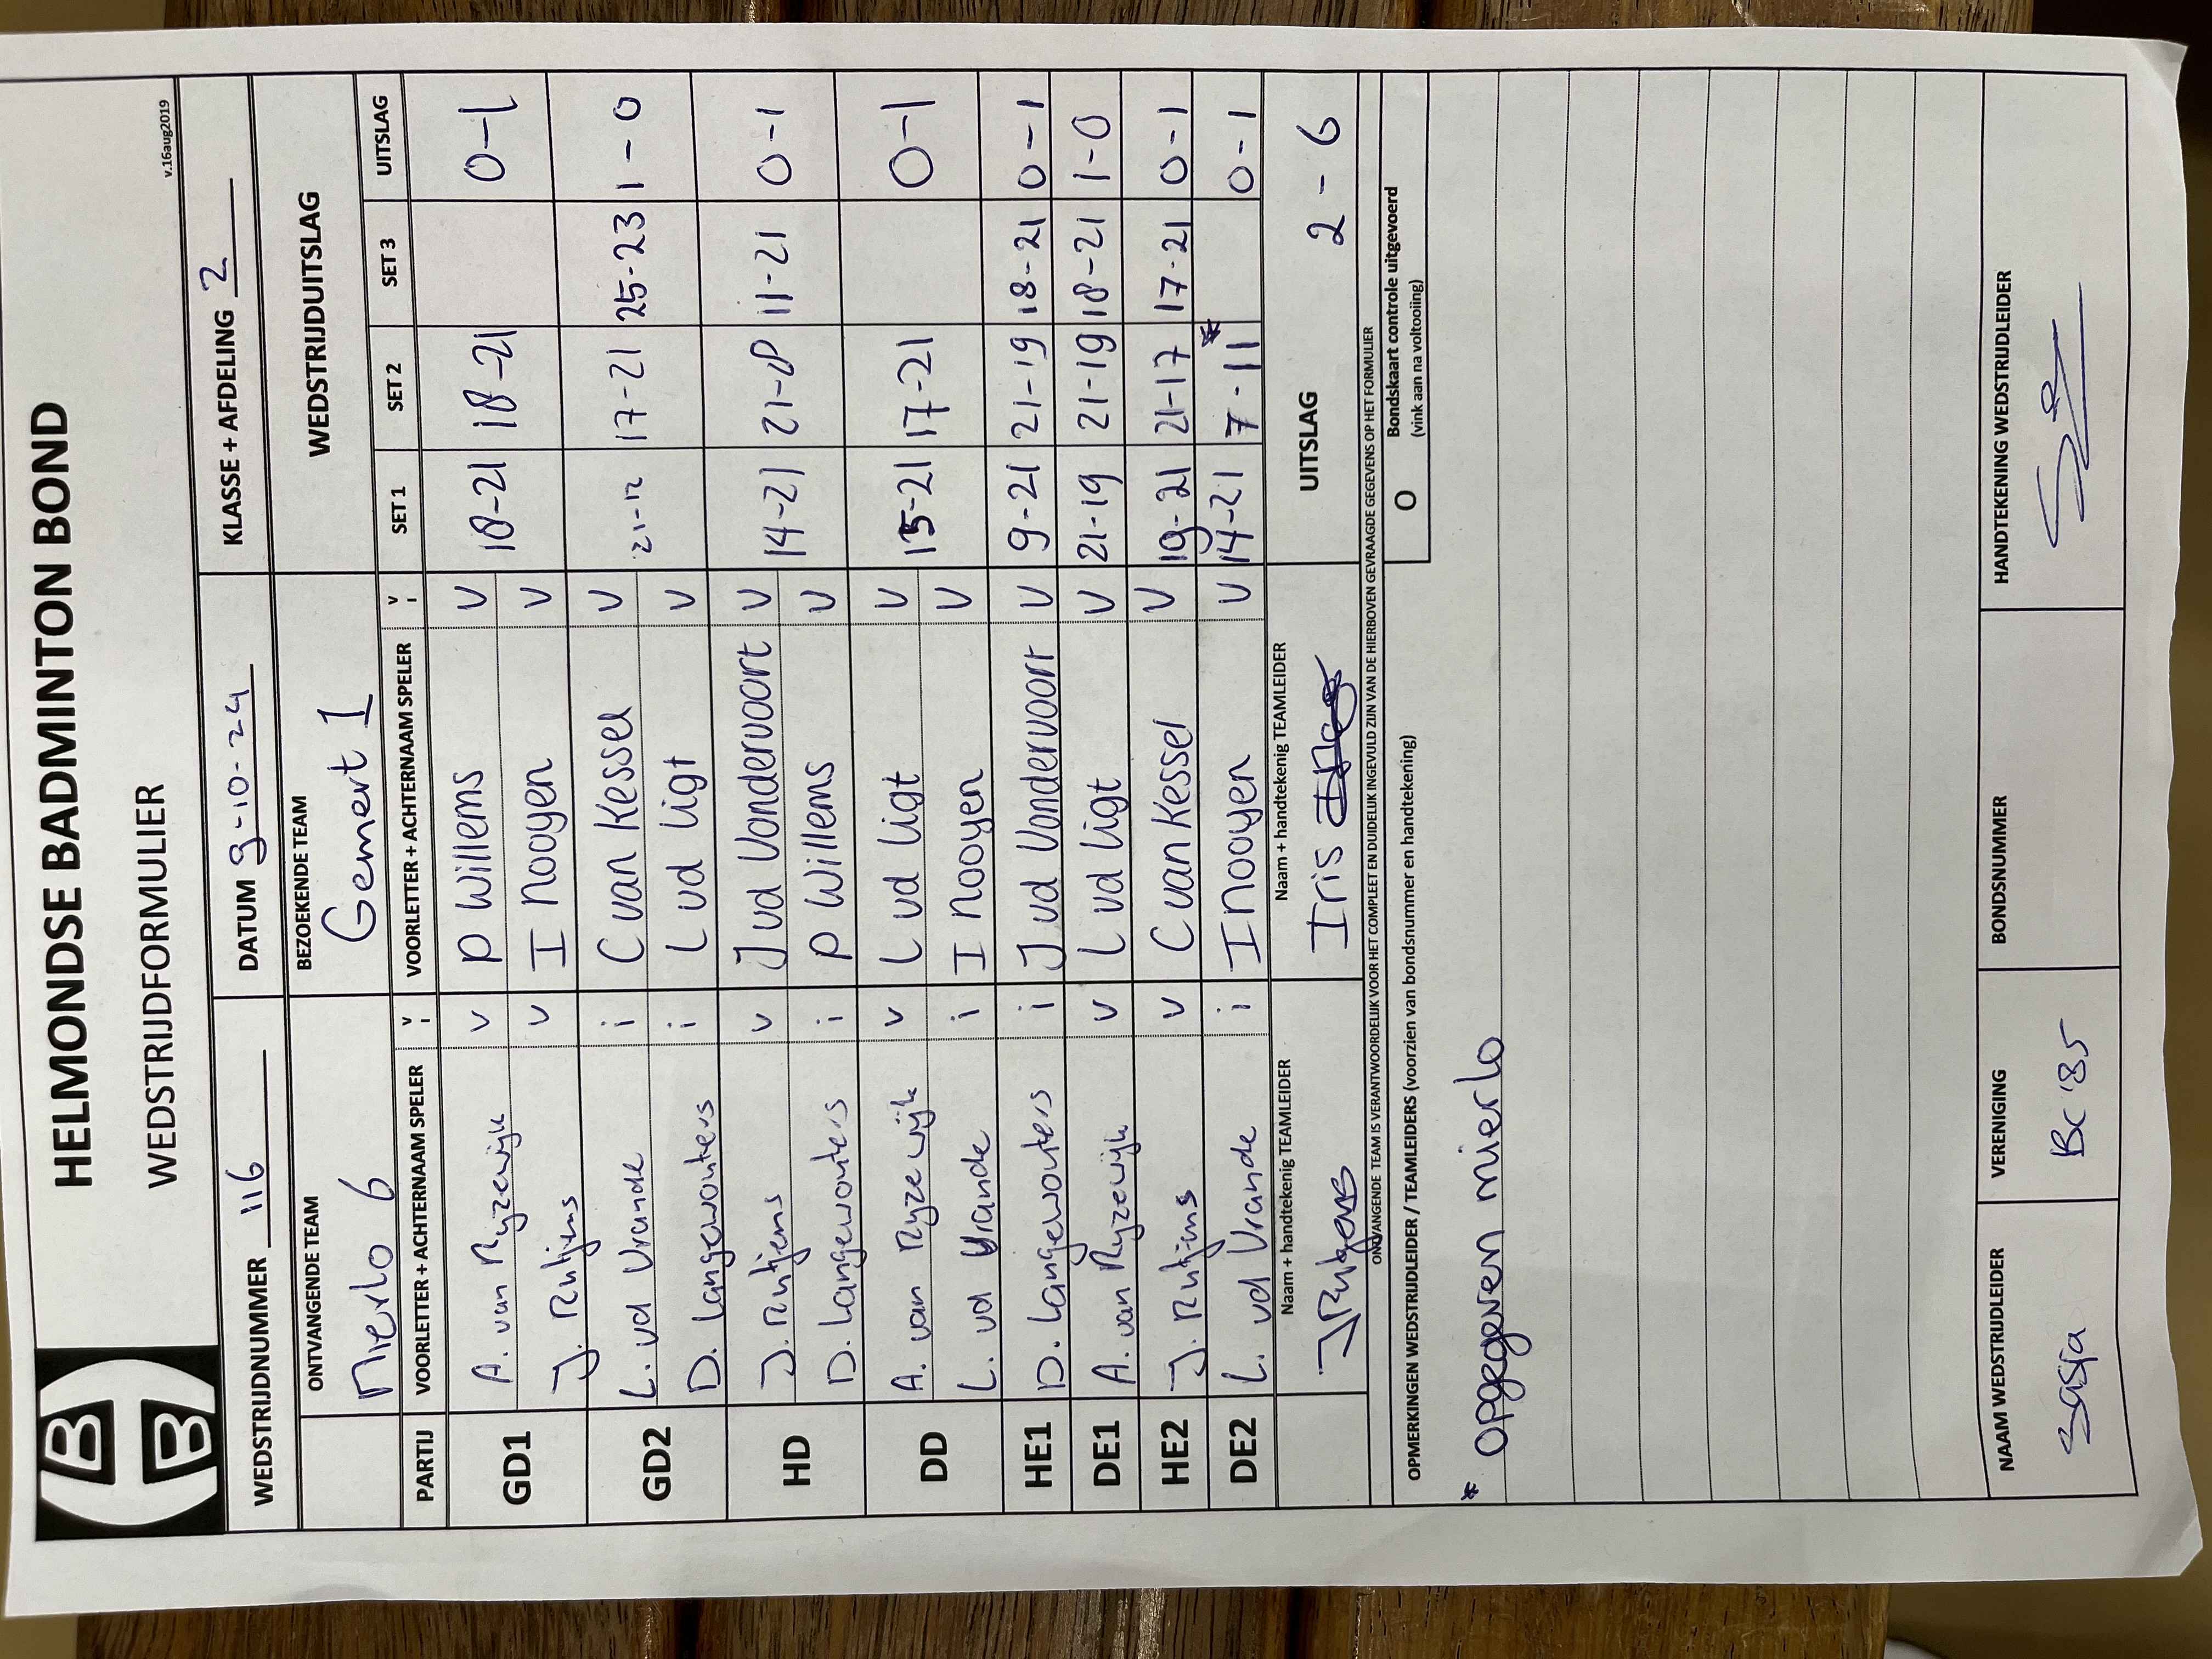 HELMONDSE BADMINTON BOND
WEDSTRIJDFORMULIER
v.16aug2019
WEDSTRIJDNUMMER 116 DATUM 9-10-24 KLASSE + AFDELING 2
ONTVANGENDE TEAM BEZOEKENDE TEAM WEDSTRIJDUITSLAG
Mierlo 6 Gemert 1
PARTIJ VOORLETTER + ACHTERNAAM SPELER V i VOORLETTER + ACHTERNAAM SPELER V i SET 1 SET 2 SET 3 UITSLAG
GD1 A. van Ryzewijk v P Willems V 18-21 18-21 0-1
J. Rutjens v I Nooyen V
GD2 L. vd Vrande i C van Kessel V 21-12 17-21 25-23 1-0
D. Langewouters i L vd Ligt V
HD J. Rutjens v J vd Vondervoort V 14-21 21-18 11-21 0-1
D. Langewouters i P Willems V
DD A. van Ryzewijk v L vd Ligt V 15-21 17-21 0-1
L. vd Vrande i I Nooyen V
HE1 D. Langewouters i J vd Vondervoort V 9-21 21-19 18-21 0-1
DE1 A. van Ryzewijk v L vd Ligt V 21-19 21-19 18-21 1-0
HE2 J. Rutjens v C van Kessel V 19-21 21-17 17-21 0-1
DE2 L. vd Vrande i I Nooyen V 14-21 7-11* 0-1
Naam + handtekenig TEAMLEIDER Naam + handtekenig TEAMLEIDER UITSLAG 2-6
J Rutjens Iris
ONTVANGENDE TEAM IS VERANTWOORDELIJK VOOR HET COMPLEET EN DUIDELIJK INGEVULD ZIJN VAN DE HIERBOVEN GEVRAAGDE GEGEVENS OP HET FORMULIER
OPMERKINGEN WEDSTRIJDLEIDER / TEAMLEIDERS (voorzien van bondsnummer en handtekening) O Bondskaart controle uitgevoerd
(vink aan na voltooiing)
* Opgegeven mierlo
NAAM WEDSTRIJDLEIDER VERENIGING BONDSNUMMER HANDTEKENING WEDSTRIJDLEIDER
BC '85